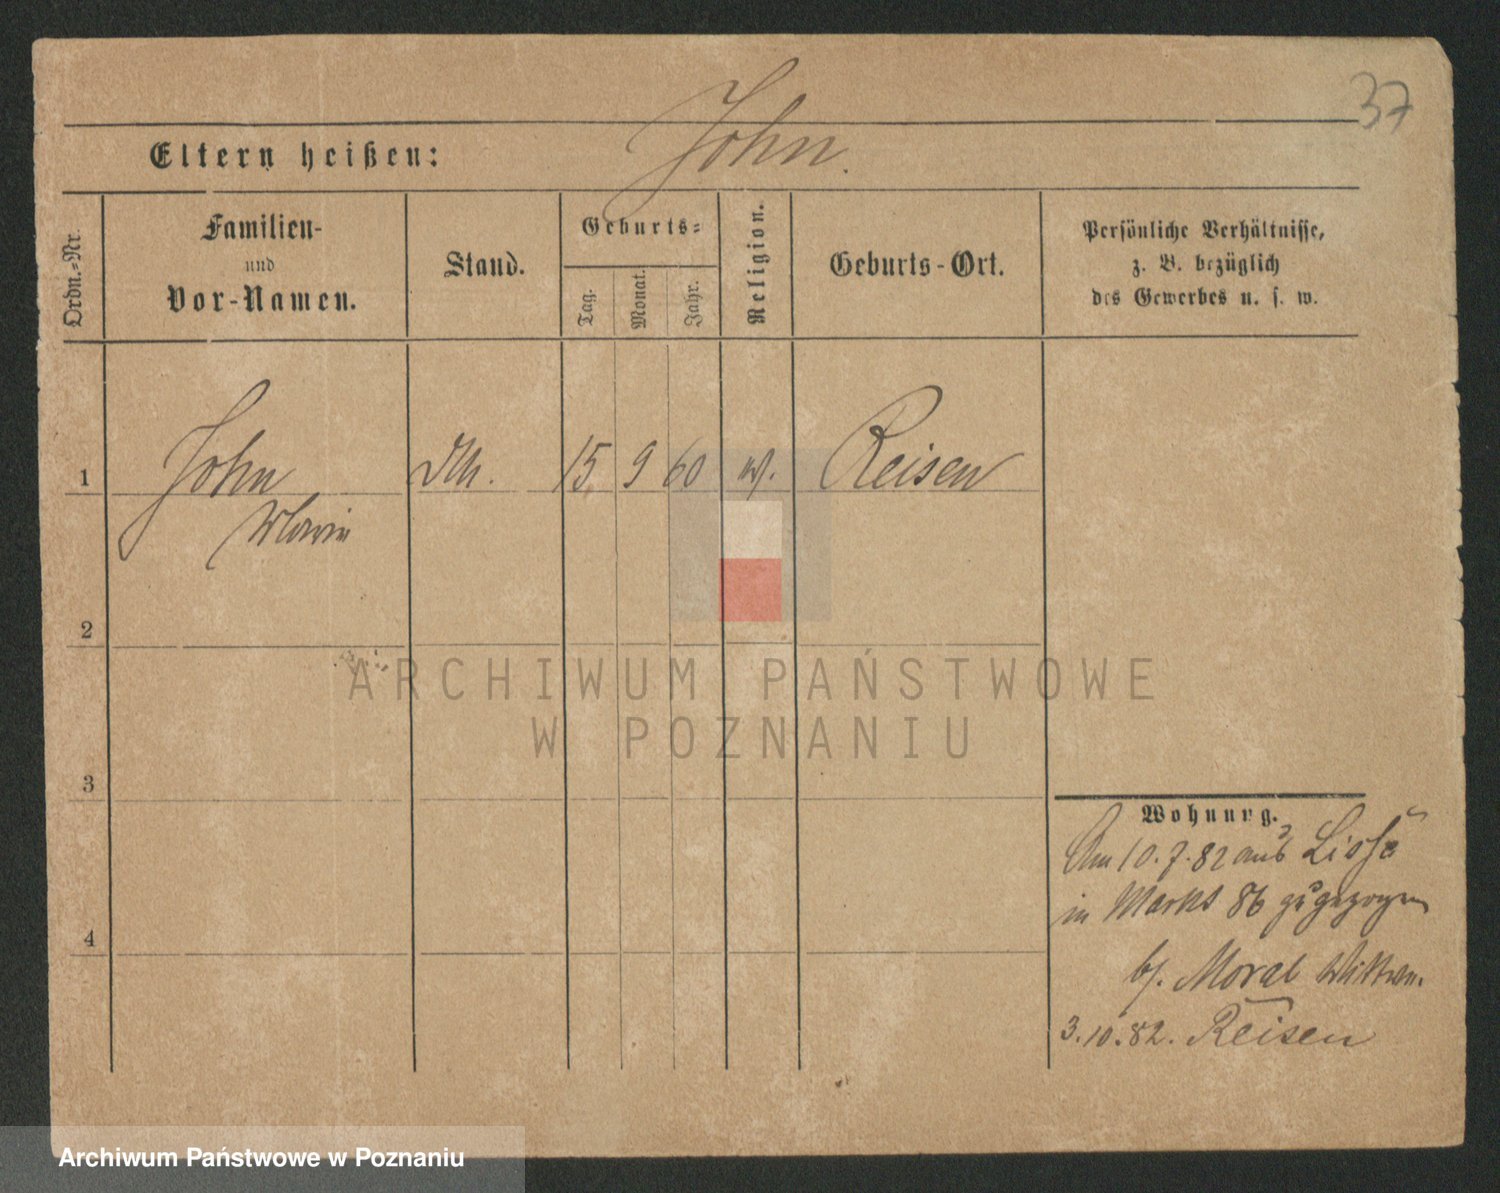 37
John.
Eltern heißen:
Ordn.-Nr.
Familien-
und
Vor-Namen.
Stand.
Geburts-
Tag.
Monat.
Jahr.
Religion.
Geburts-Ort.
Persönliche Verhältnisse,
z. B. bezüglich
des Gewerbes u. s. w.
1
John
15
9
60
Reisen
2
3
4
Wohnung.
Am 10.7.82 aus Lissa
in Markt 86 zugezogen
bf. Moral Wittwe.
3.10.82. Reisen
ARCHIWUM PAŃSTWOWE
W POZNANIU
Archiwum Państwowe w Poznaniu